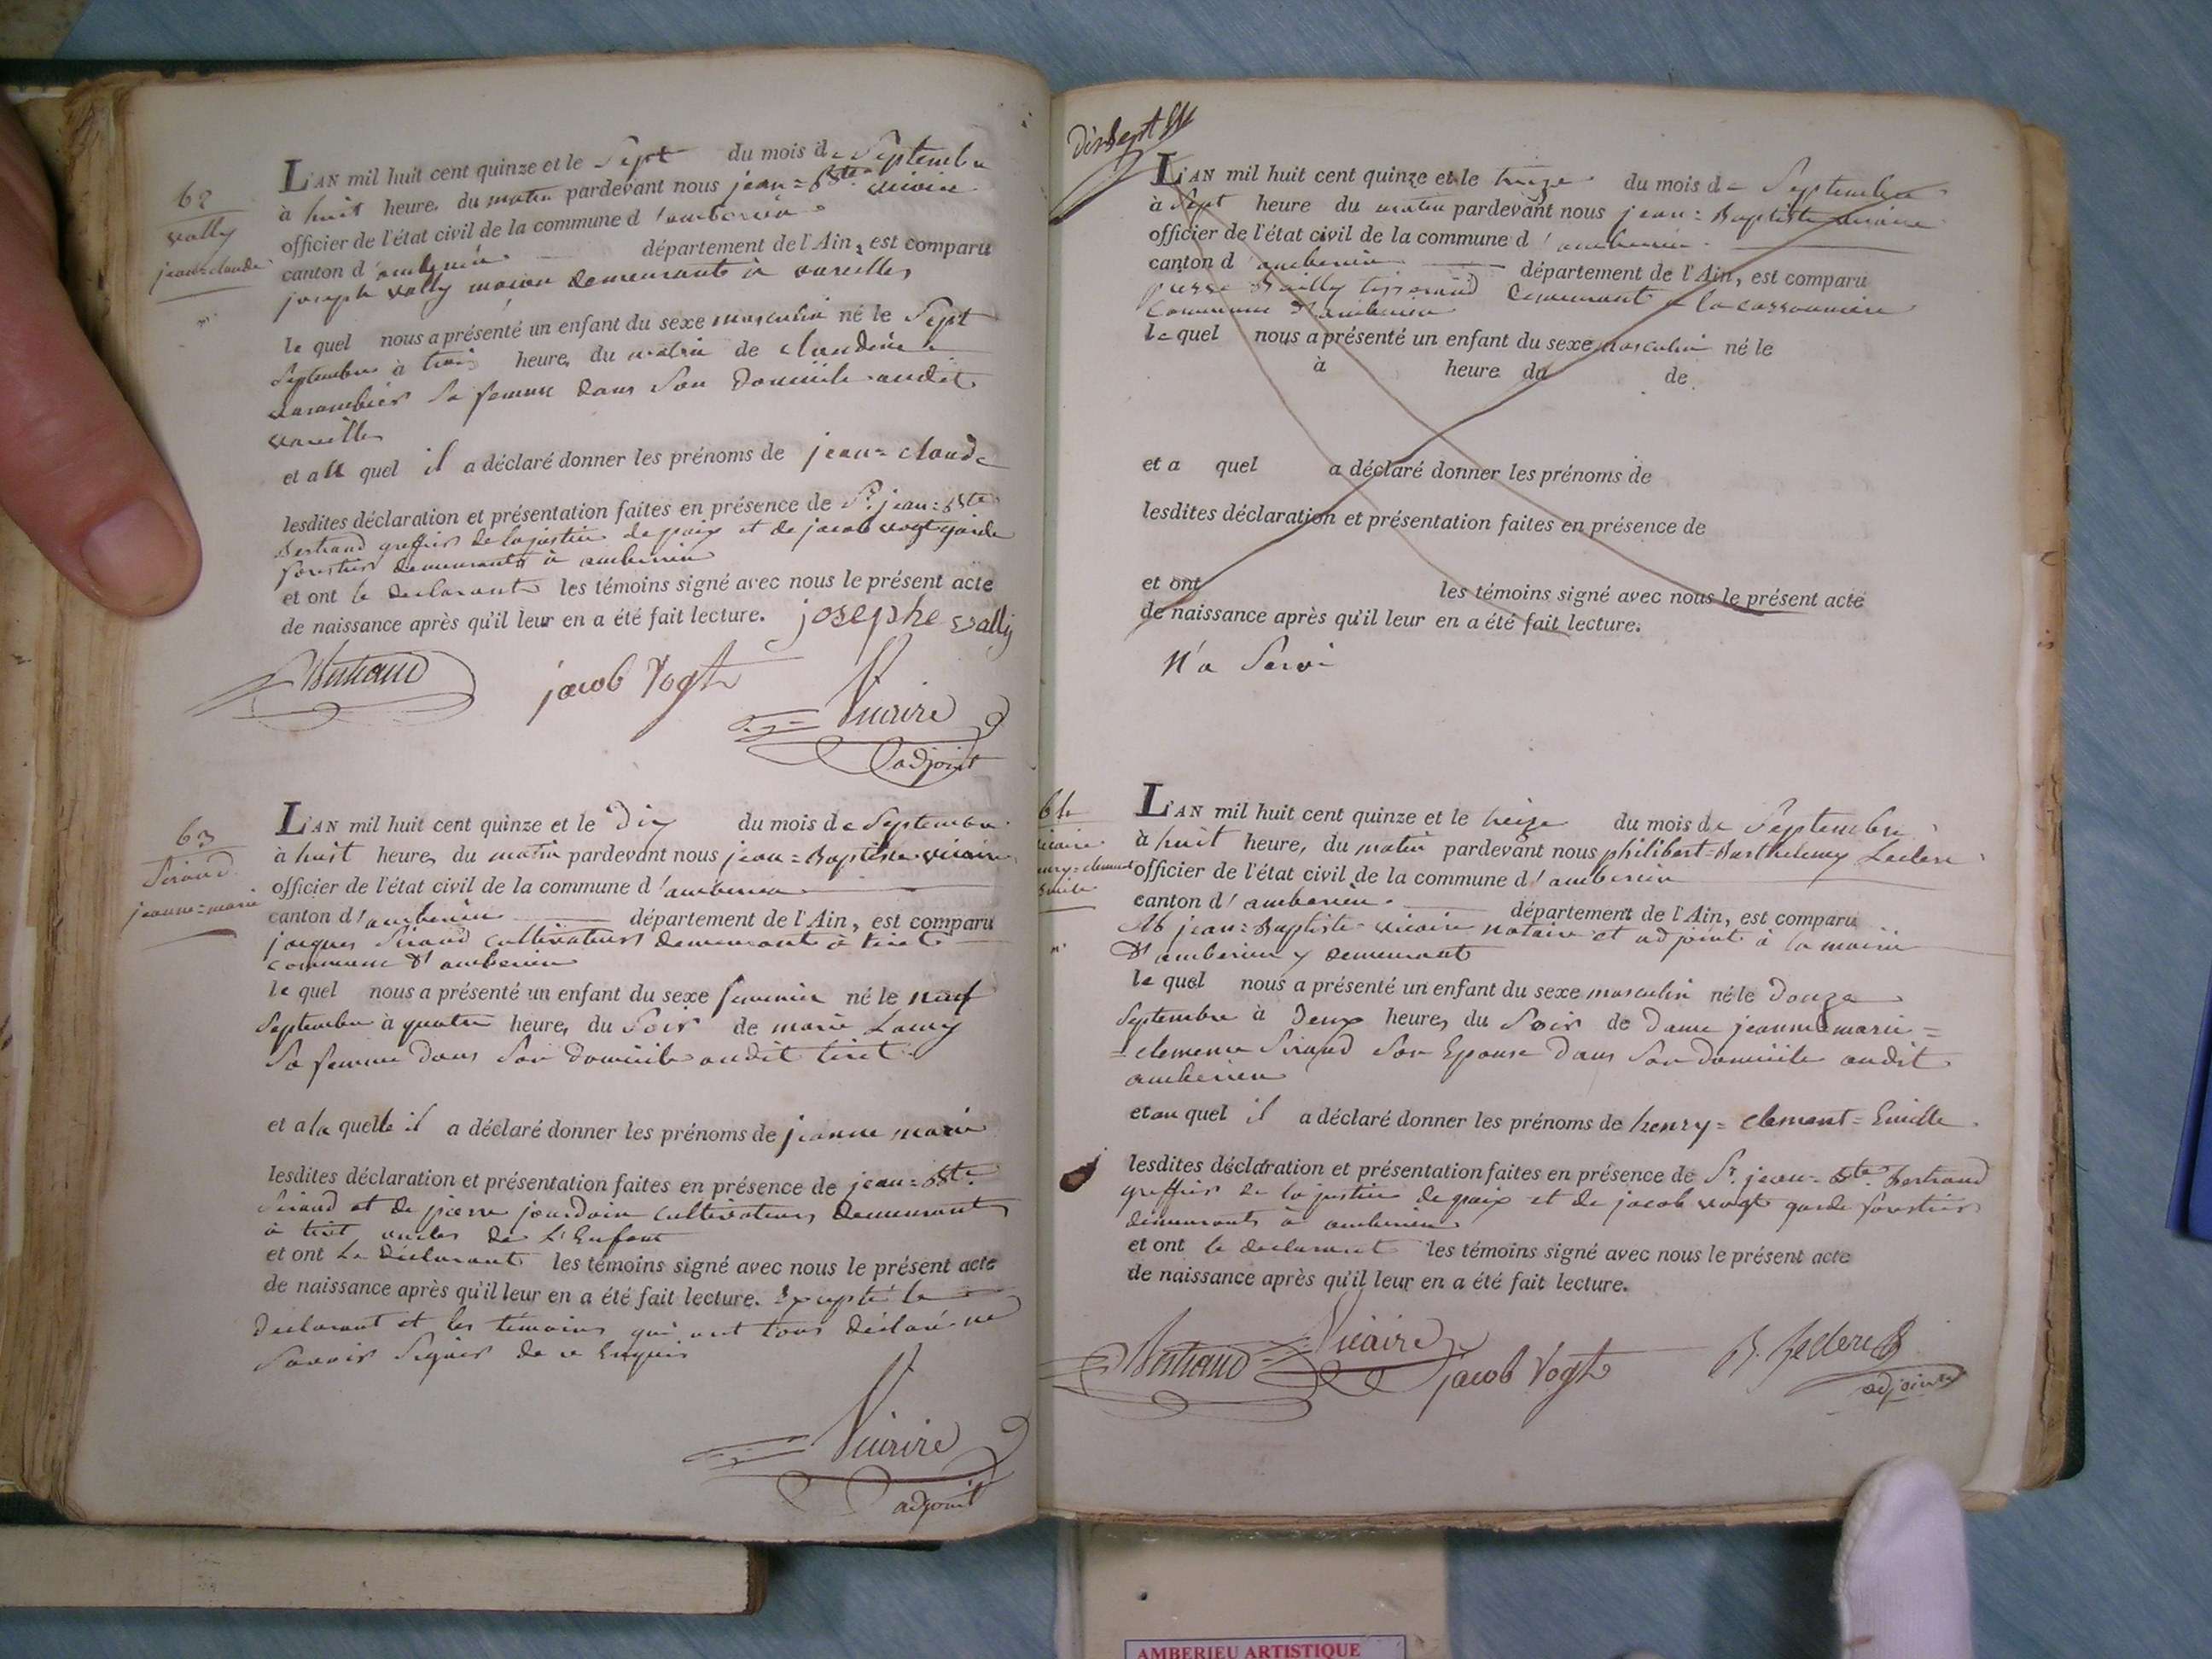 62
vally
jean=claude
L'AN mil huit cent quinze et le Sept du mois de Septembre
à huit heures du matin pardevant nous jean=Bte vicaire
officier de l'état civil de la commune d'amberieu
canton d'amberieu département de l'Ain, est comparu
joseph vally maçon demeurant à vareilles
le quel nous a présenté un enfant du sexe masculin né le Sept
Septembre à trois heures du matin de claudine
sa femme dans Son Domicile audit
vareilles
et au quel il a déclaré donner les prénoms de jean=claude
lesdites déclaration et présentation faites en présence de Sr. jean=Bte
Bertrand greffier de la justice de paix et de jacob vogt garde
forestier demeurants à amberieu
et ont le declarant les témoins signé avec nous le présent acte
de naissance après qu'il leur en a été fait lecture. josephe vally
Bertrand jacob Vogt Vicaire
adjoint
63
Sirand
jeanne=marie
L'AN mil huit cent quinze et le Dix du mois de Septembre
à huit heures du matin pardevant nous jean=Baptiste vicaire
officier de l'état civil de la commune d'amberieu
canton d'amberieu département de l'Ain, est comparu
jacques Sirand cultivateur demeurant à tiret
commune d'amberieu
le quel nous a présenté un enfant du sexe feminin né le neuf
Septembre à quatre heures du Soir de marie
Sa femme dans Son Domicile audit tiret
et a la quelle il a déclaré donner les prénoms de jeanne marie
lesdites déclaration et présentation faites en présence de jean=Bte
Sirand et de pierre jourdain cultivateurs demeurants
à tiret oncles de L'Enfant
et ont Le Déclarant les témoins signé avec nous le présent acte
de naissance après qu'il leur en a été fait lecture. Excepté le
Declarant et les témoins qui ont tous déclaré ne
Savoir Signer de ce Enquis
Vicaire
adjoint
L'AN mil huit cent quinze et le treize du mois de Septembre
à Sept heure du matin pardevant nous jean=Baptiste vicaire
officier de l'état civil de la commune d'amberieu
canton d'amberieu département de l'Ain, est comparu
pierre Bailly tisserand Demeurant
commune d'amberieu
le quel nous a présenté un enfant du sexe masculin né le
à heure du de
et a quel a déclaré donner les prénoms de
lesdites déclaration et présentation faites en présence de
et ont les témoins signé avec nous le présent acte
de naissance après qu'il leur en a été fait lecture.
N'a Servi
64
L'AN mil huit cent quinze et le treize du mois de Septembre
à huit heures du matin pardevant nous philibert=Barthelemy Leclerc
officier de l'état civil de la commune d'amberieu
canton d'amberieu département de l'Ain, est comparu
jean=Baptiste vicaire notaire et adjoint à la mairie
d'amberieu y demeurant
le quel nous a présenté un enfant du sexe masculin né le Douze
Septembre à Deux heures du Soir de Dame jeanne marie=
=clemence Sirand Son Epouse Dans Son Domicile audit
amberieu
et au quel il a déclaré donner les prénoms de henry=clement=Emille
lesdites déclaration et présentation faites en présence de Sr. jean=Bte Bertrand
greffier de la justice de paix et de jacob vogt garde forestier
demeurants à amberieu
et ont le declarant les témoins signé avec nous le présent acte
de naissance après qu'il leur en a été fait lecture.
Bertrand Vicaire jacob Vogt B. Leclerc
adjoint
AMBERIEU ARTISTIQUE